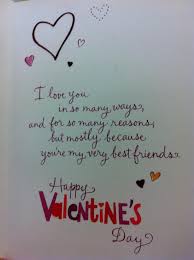 I love you
in so many ways,
and for so many reasons,
but mostly because
you're my very best friends.
Happy
VALENTINE'S
Day